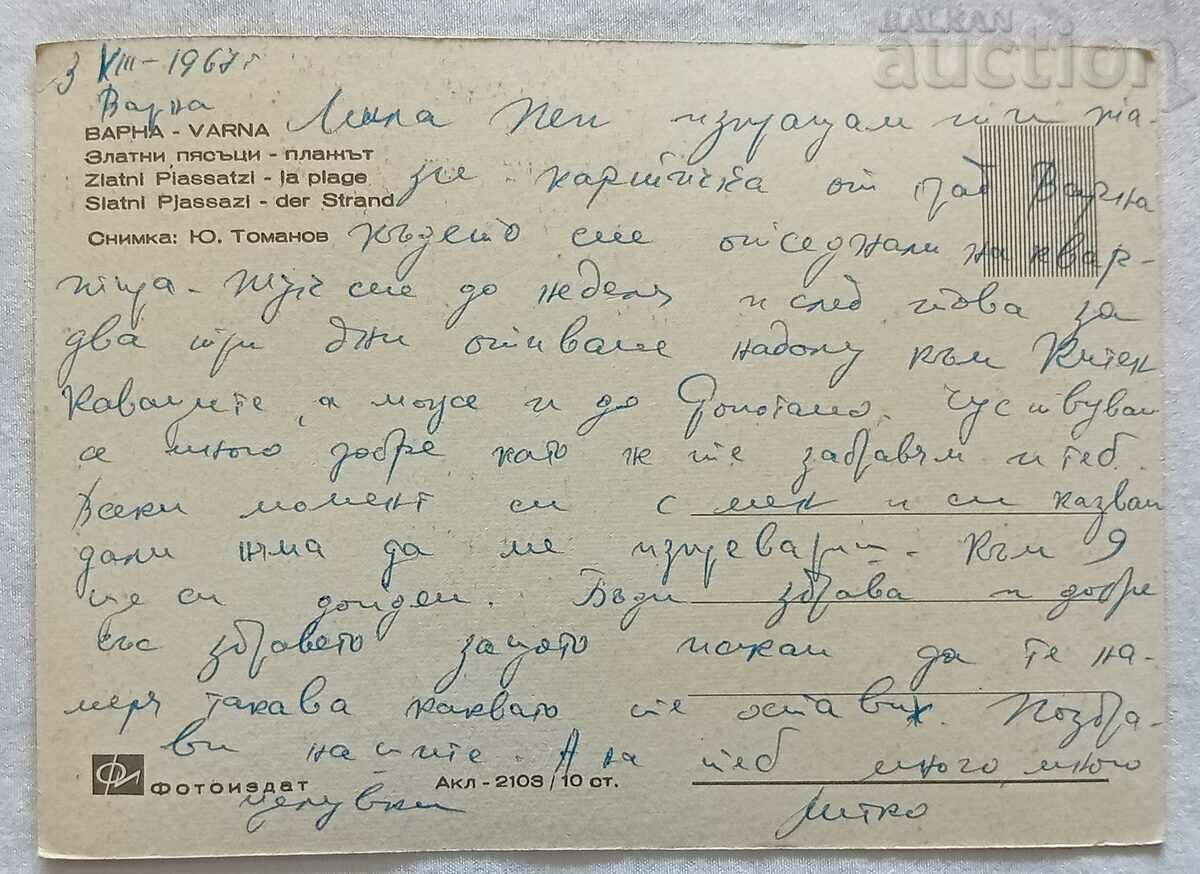 BALKAN
auction
3 VIII - 1967 г
Варна
ВАРНА - VARNA
Златни пясъци - плажът
Zlatni Piassatzi - la plage
Slatni Pjassazi - der Strand
Снимка: Ю. Томанов
Мила Пепи изпращам ти та-
зи картичка от град Варна
където сме отседнали на квар-
тира. Тук сме до неделя и след това за
два три дни отиваме надолу към Китен
Каваците, а може и до Ропотамо. Чуствувам
се много добре като не те забравям и теб.
Всеки момент си с мен и си казвам
дали няма да ме изпревариш. Към 9
ще си дойдем. Бъди здрава и добре
със здравето защото искам да те на-
меря такава каквато те оставих. Поздра-
ви на щите. А на теб много много
целувки Митко
ФОТОИЗДАТ
Акл - 2103/10 ст.